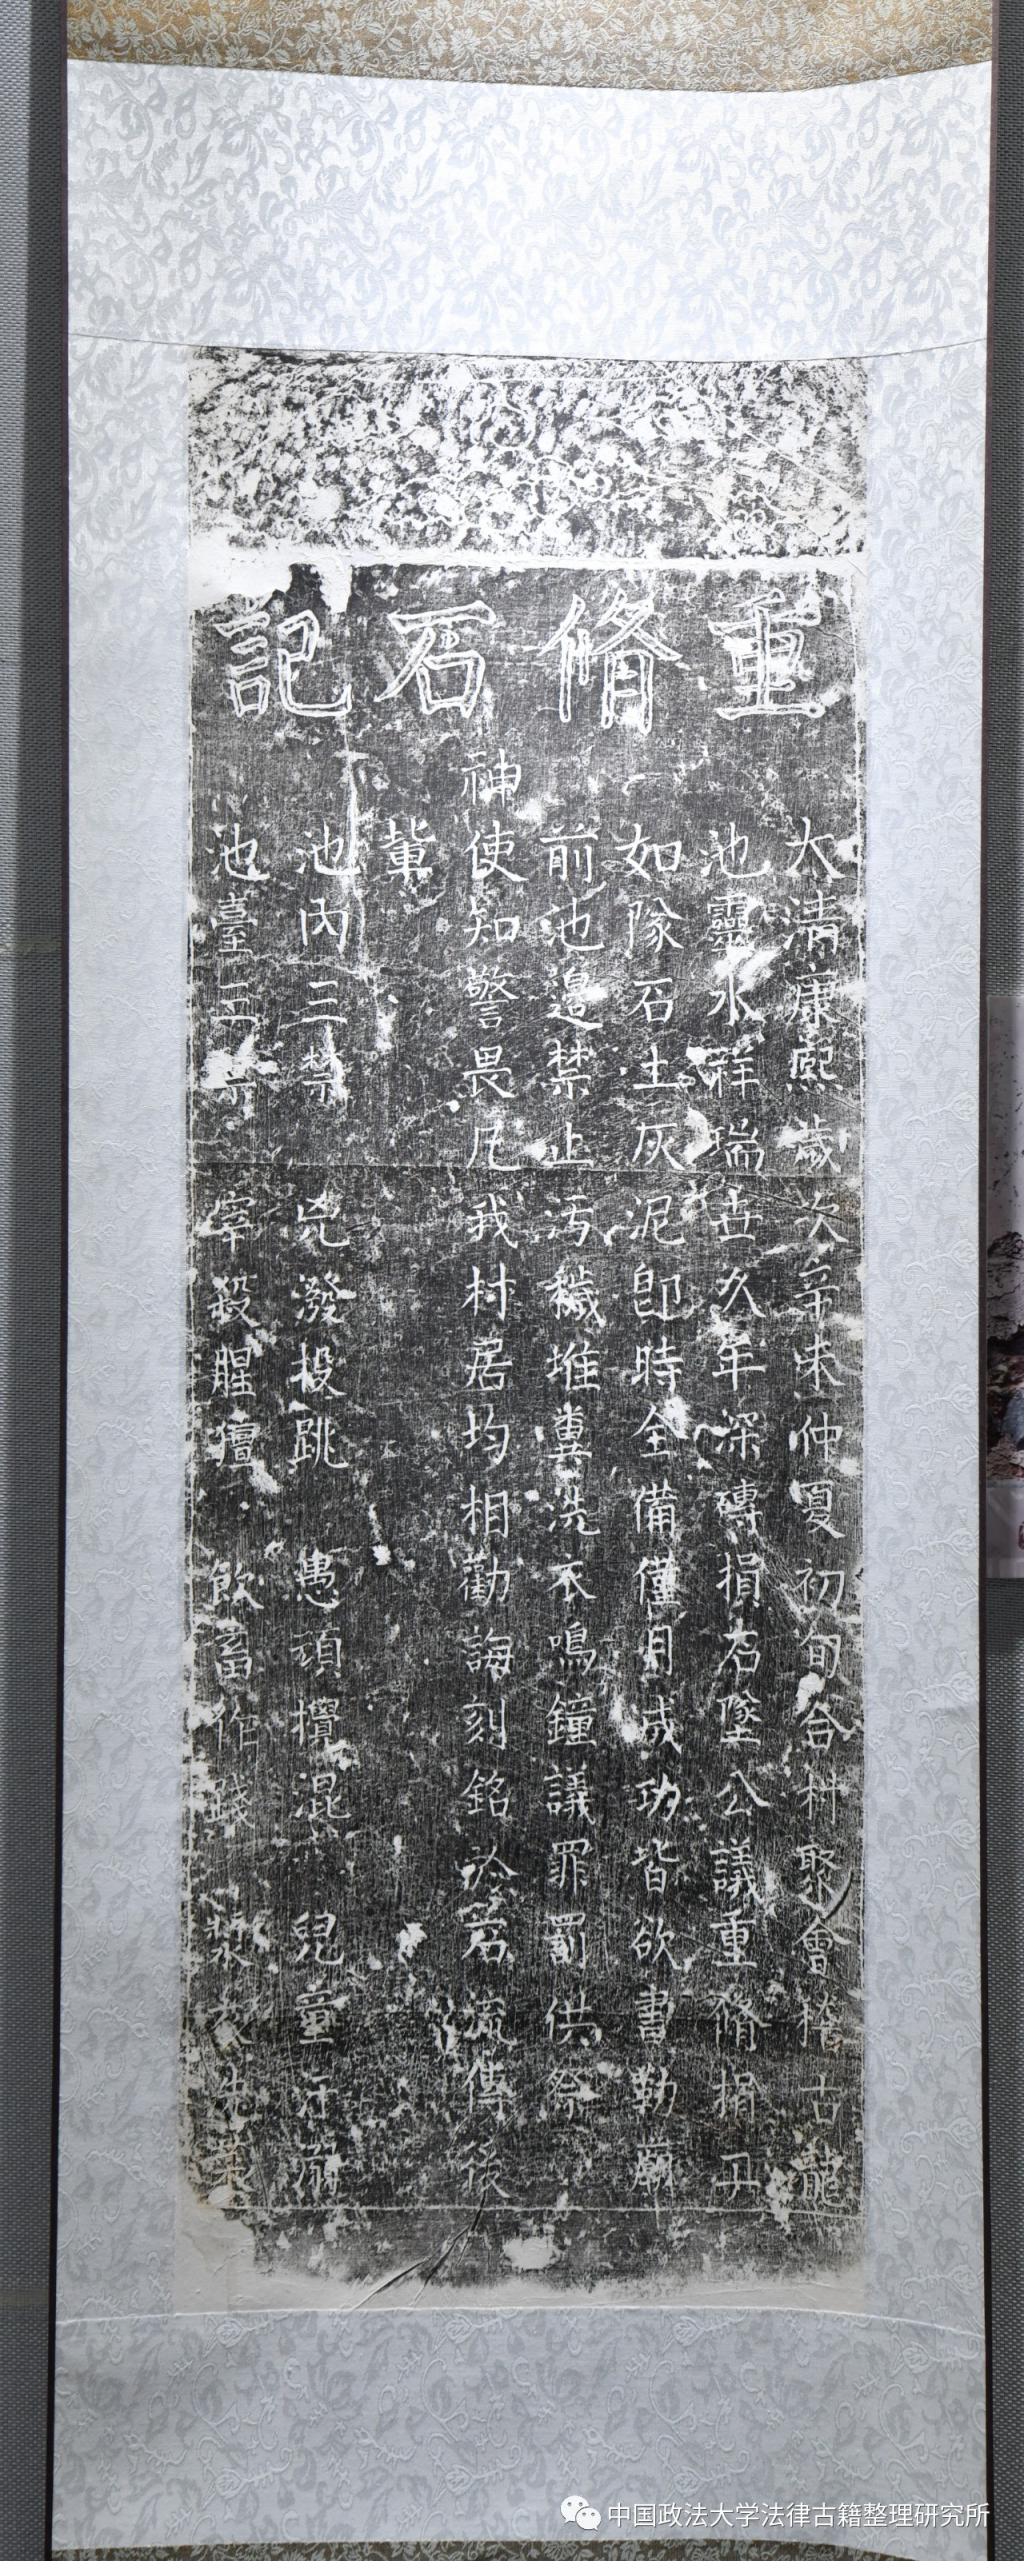 重脩石記
大清康熙歲次辛未仲夏初旬合村聚會 古龍
池靈水祥瑞世久年深磚損石墜公議重脩捐工
如隊石土灰泥即時全備僅月成功皆欲書勒廟
前池邉禁止污穢堆糞洗衣鳴鐘議罪罰供祭
神使知警畏凡我村居均相勸誨刻銘於石流傳後
輩
池內三禁 兇潑投跳 愚頑攪混 兒童汙溺
池臺三 宰殺腥羶 飲畜作踐
中国政法大学法律古籍整理研究所